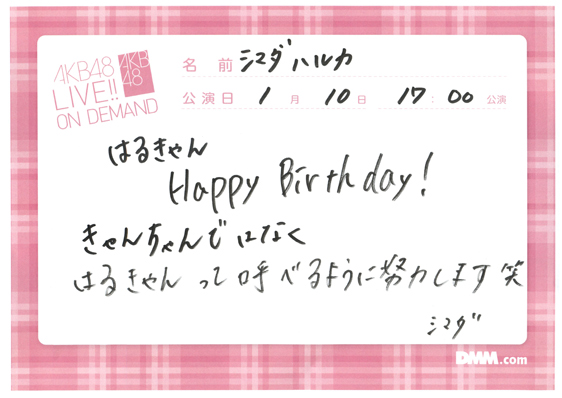 AKB48
LIVE!!
ON DEMAND
AKB
48
名前 シマダハルカ
公演日 1月10日 17:00公演
はるきゃん
Happy Birthday!
きゃんちゃんではなく
はるきゃんって呼べるように努力します笑
シマダ
DMM.com